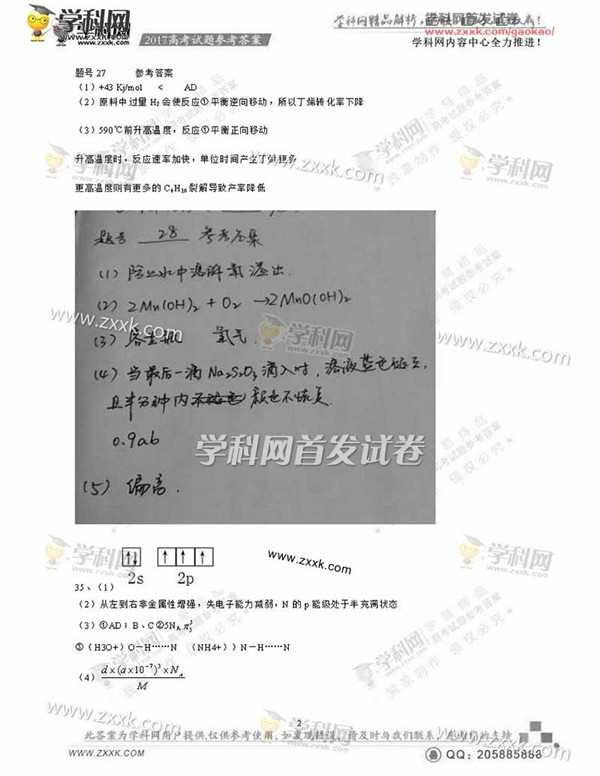 学科网
www.zxxk.com
2017高考试题参考答案
学科网精品解析,
学科网首发试卷
www.zxxk.com/gaokao/
学科网内容中心全力推进!
题号 27 参考答案
(1) +43 Kj/mol < AD
(2) 原料中过量 H₂ 会使反应①平衡逆向移动,所以丁烯转化率下降
(3) 590℃前升高温度,反应①平衡正向移动
升高温度时,反应速率加快,单位时间产生丁烯更多
更高温度则有更多的 C₄H₁₀ 裂解导致产率降低
题号 28 参考答案
(1) 水中溶解氧溢出.
(2) 2Mn(OH)₂ + O₂ → 2MnO(OH)₂
(3) 容量瓶 氧气.
(4) 当最后一滴 Na₂S₂O₃ 滴入时,溶液蓝色褪去,
且半分钟内 颜色不恢复
0.9ab
学科网首发试卷
(5) 偏高.
↑↓ ↑ ↑ ↑
2s 2p
35、(1)
(2) 从左到右非金属性增强,失电子能力减弱,N 的 p 能级处于半充满状态
(3) ①AD; B、C ②5Nₐ
③ (H3O+) O-H……N (NH4+)) N-H……N
(4) d×(a×10⁻⁷)³×Nₐ / M
2
此答案为学科网用户提供,仅供参考使用,如发现错误,请及时与我们联系,感谢您的支持
ZXXK.COM 学科网
QQ: 205885868